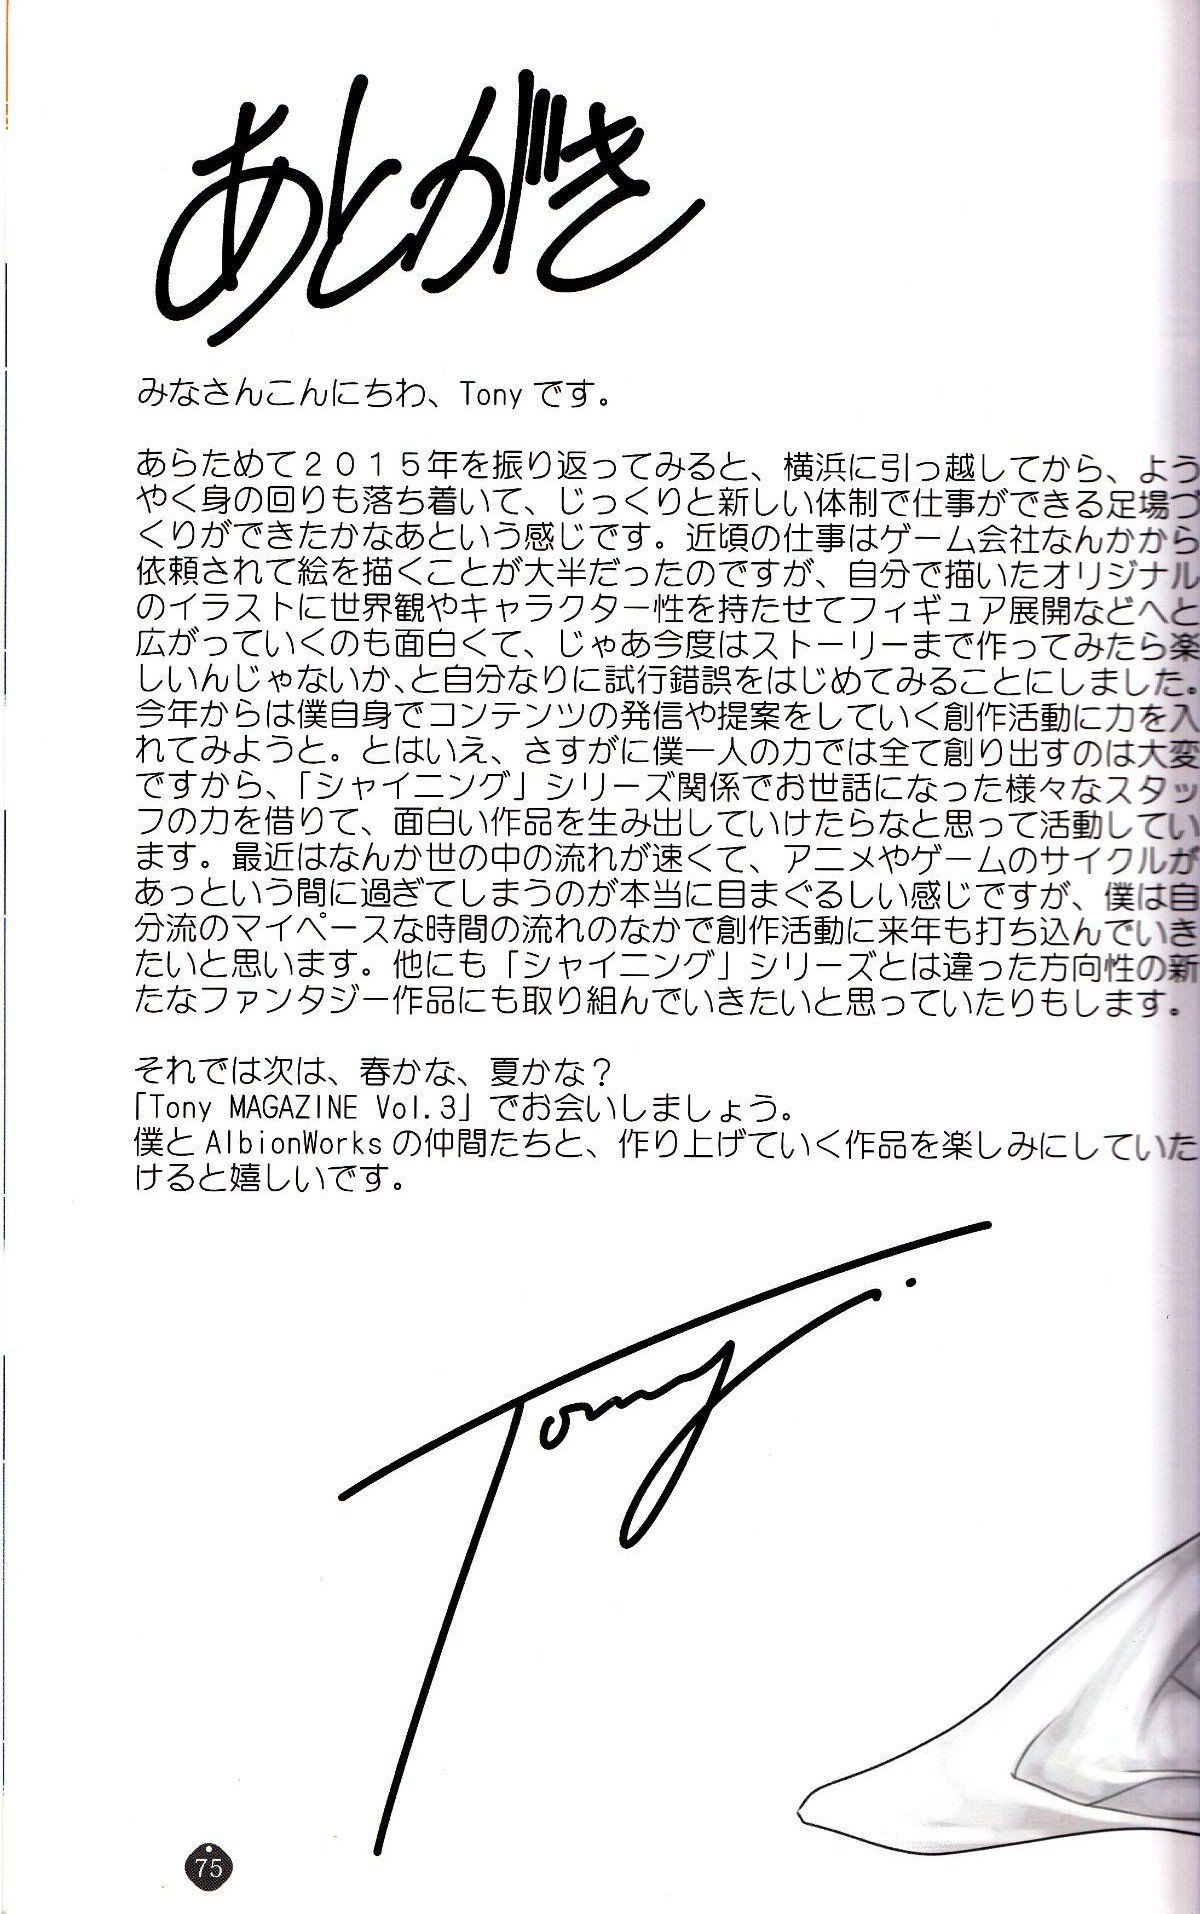 あとがき
みなさんこんにちわ、Tonyです。
あらためて２０１５年を振り返ってみると、横浜に引っ越してから、よう
やく身の回りも落ち着いて、じっくりと新しい体制で仕事ができる足場づ
くりができたかなあという感じです。近頃の仕事はゲーム会社なんかから
依頼されて絵を描くことが大半だったのですが、自分で描いたオリジナル
のイラストに世界観やキャラクター性を持たせてフィギュア展開などへと
広がっていくのも面白くて、じゃあ今度はストーリーまで作ってみたら楽
しいんじゃないか、と自分なりに試行錯誤をはじめてみることにしました。
今年からは僕自身でコンテンツの発信や提案をしていく創作活動に力を入
れてみようと。とはいえ、さすがに僕一人の力では全て創り出すのは大変
ですから、「シャイニング」シリーズ関係でお世話になった様々なスタッ
フの力を借りて、面白い作品を生み出していけたらなと思って活動してい
ます。最近はなんか世の中の流れが速くて、アニメやゲームのサイクルが
あっという間に過ぎてしまうのが本当に目まぐるしい感じですが、僕は自
分流のマイペースな時間の流れのなかで創作活動に来年も打ち込んでいき
たいと思います。他にも「シャイニング」シリーズとは違った方向性の新
たなファンタジー作品にも取り組んでいきたいと思っていたりもします。
それでは次は、春かな、夏かな？
「Tony MAGAZINE Vol.3」でお会いしましょう。
僕とAlbionWorksの仲間たちと、作り上げていく作品を楽しみにしていた
けると嬉しいです。
Tony
75